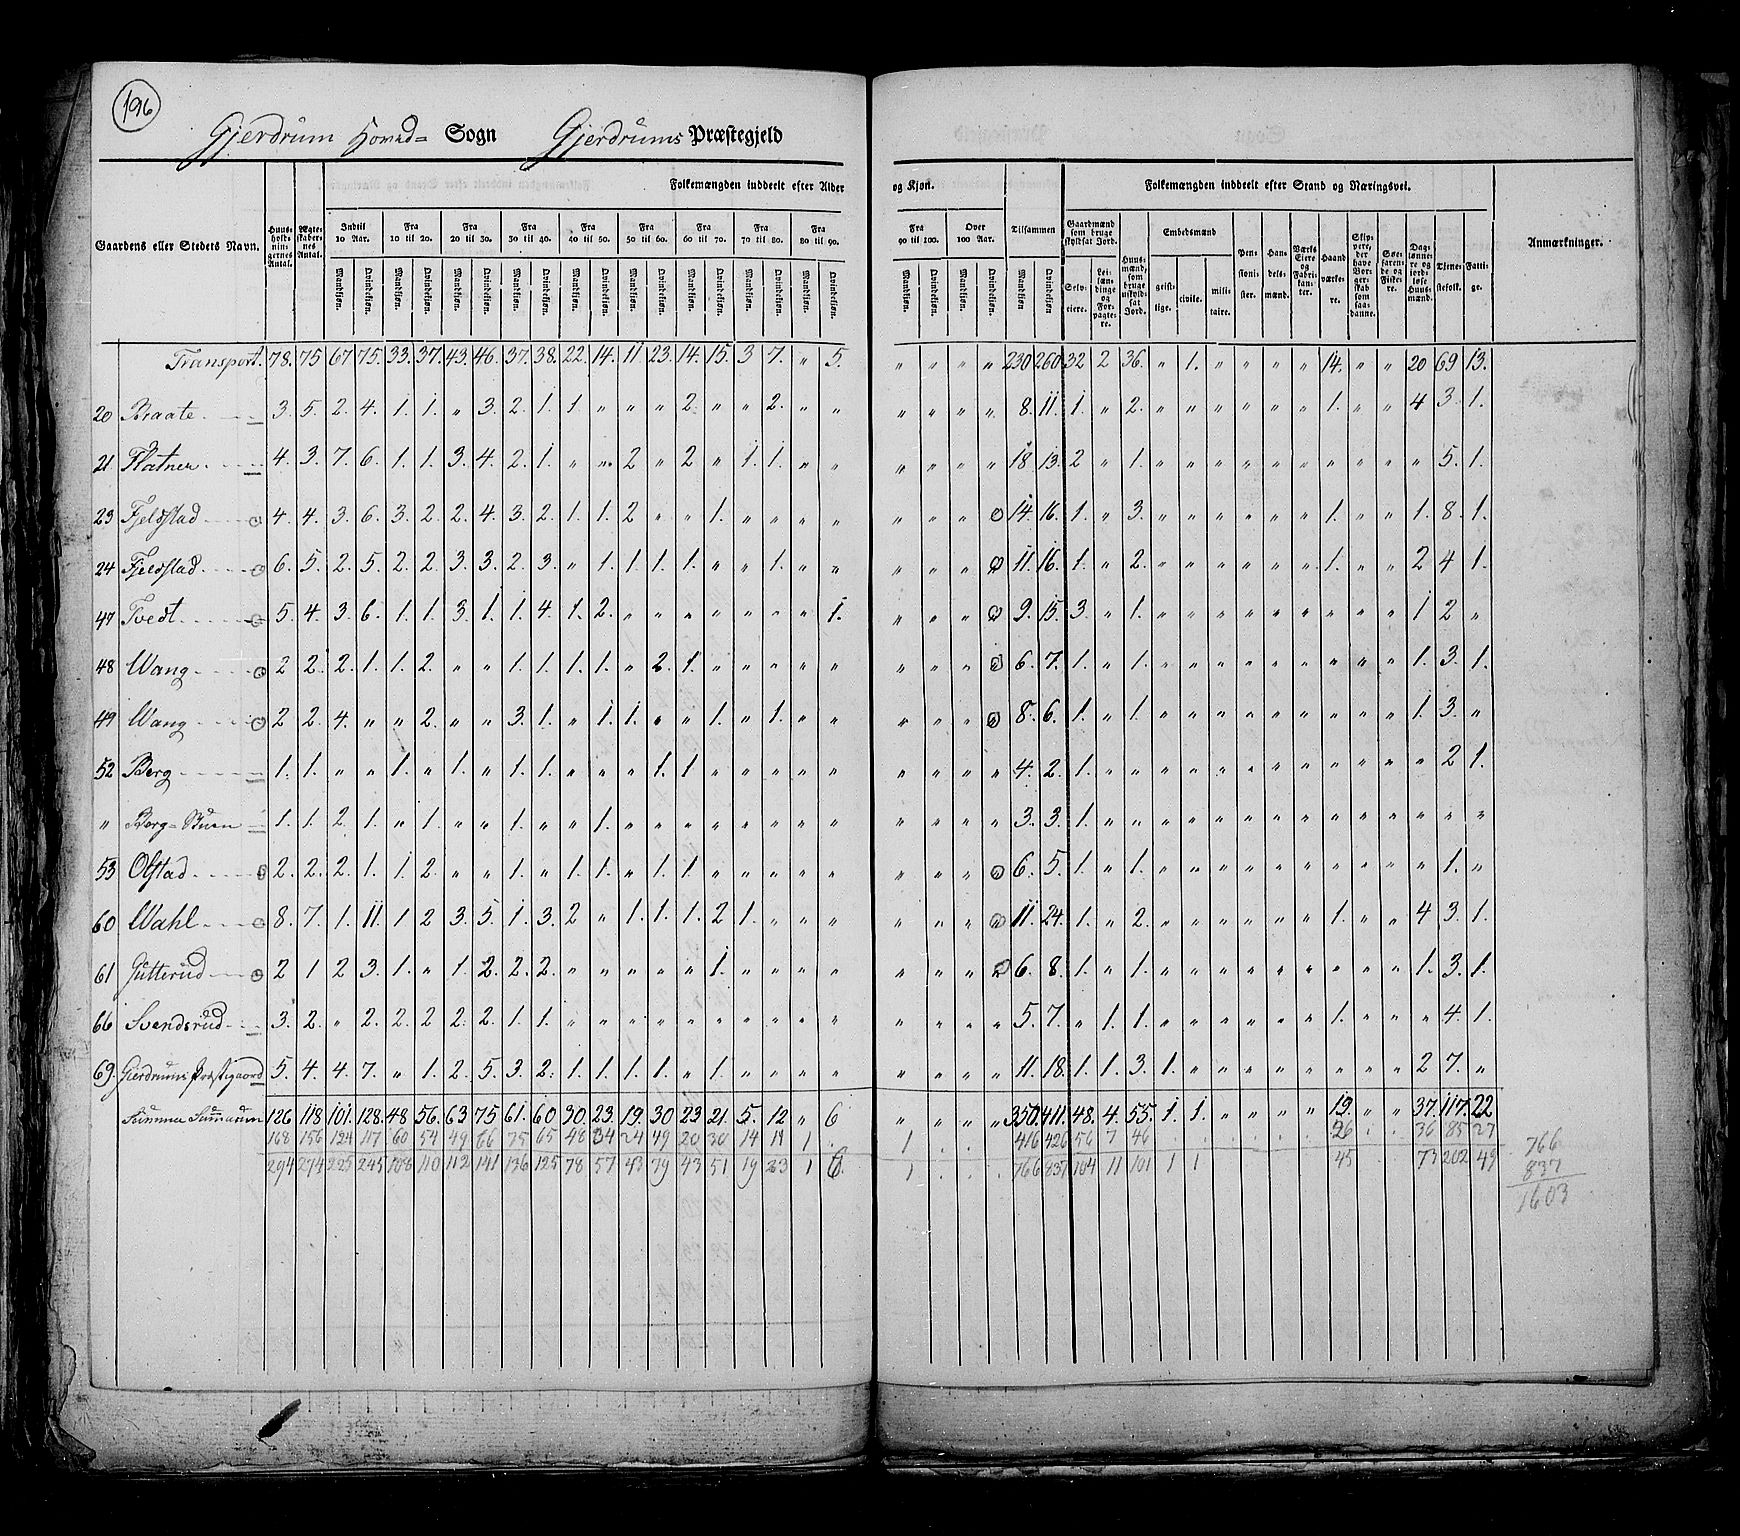 196
Gjerdrum Hoved= Sogn Gjerdrums Præstegjeld
Gaardens eller Stedets Navn.
Huusholdningernes Antal.
Ægteskabernes Antal.
Folkemængden inddeelt efter Alder og Kjøn.
Indtil 10 Aar. Fra 10 til 20. Fra 20 til 30. Fra 30 til 40. Fra 40 til 50. Fra 50 til 60. Fra 60 til 70. Fra 70 til 80. Fra 80 til 90. Fra 90 til 100. Over 100 Aar. Tilsammen
Mandkjøn. Qvindekjøn.
Folkemængden inddeelt efter Stand og Næringsvei.
Gaardmænd som bruge skyldsat Jord.
Selveiere. Leilændinge og Forpagtere.
Huusmænd, som bruge uskyldsat Jord.
Embedsmænd
geistlige. civile. militaire.
Pensionister. Handelsmænd. Værks Eiere og Fabrikanter. Haandværkere. Skippere, der have Borgerskab som saadanne. Søefarende og Fiskere. Daglønnere og jordløse Huusmænd. Tjenestefolk. Fattige.
Anmærkninger.
Transport. 78. 75 67. 75. 33. 37. 43. 46. 37. 38. 22. 14. 11. 23. 14. 15. 3 7. " 5. " " " " 230 260 32 2 36. " 1. " " " " 14. " " 20 69 13.
20 Braate 3. 5. 2. 4. 1. 1. " 3. 2. 1. 1. " " " 2. " " 2. " " " " " " 8. 11. 1. " 2. " " " " " " 1. " " 4 3. 1.
21. Flatner 4. 3. 7. 6. 1. 1. 3. 4. 2. 1. " " 2 " 2 " 1. 1. " " " " " " 18 13. 2 " 1. " " " " " " " " " " 5. 1.
23 Fjeldstad 4. 4. 3. 6. 3. 2. 2. 4. 3. 2. 1. 1. 2 " " 1. " " " " " " " " 14. 16. 1. " 3. " " " " " " 1. " " 1. 8. 1.
24 Fjeldstad 6. 5. 2. 5. 2. 2. 3. 3. 2. 3. " 1. 1. 1. 1. " " 1. " " " " " " 11. 16. 1. " 2. " " " " " " 1. " " 2 4 1.
47 Tvedt 5. 4. 3. 6. 1. 1. 3. 1. 1. 4. 1. 2. " " " " " " " 1. " " " " 9. 15. 3. " 1. " " " " " " " " " 1 2 "
48 Wang 2 2. 2. 1. 1. 2. " " 1. 1. 1. 1. " 2. 1. " " " " " " " " " 6. 7. 1. " 1. " " " " " " " " " 1. 3. 1.
49 Wang 2 2. 4. " " 2. " " 3. 1. " 1. 1. " " 1. " 1. " " " " " " 8. 6. 1. " 1. " " " " " " " " " 1. 3. "
52 Berg 1. 1. " " 1. " 1. " 1. 1. " " " 1. 1 " " " " " " " " " 4. 2. 1. " " " " " " " " " " " " 2 1.
" Berg=Buen 1. 1. 2. 1. " 1. " " 1. " " 1. " " " " " " " " " " " " 3. 3. 1. " " " " " " " " " " " " " "
53 Olstad 2. 2. 2. 1. 1. 2. " " 1. " 1. 1. " 1. 1. " " " " " " " " " 6. 5. 1. " 1. " " " " " " " " " " 1. "
60 Wahl 8. 7. 1. 11. 1 2 3. 5. 1. 3. 2 " 1. 1. 1. 2 1. " " " " " " " 11. 24. 1. " 2. " " " " " " 1. " " 4 3. 1.
61 Jutterud 2 1 2 3. 1. " 1. 2. 2. 2. " " " " " 1. " " " " " " " " 6. 8. 1. " 1. " " " " " " " " " 1. 3. 1.
66 Svendsrud 3. 2. " 2. 2. 2 2. 2. 1. 1. " " " " " " " " " " " " " " 5. 7. " 1. 1. " " " " " " 1. " " " 4. 1.
69. Gjerdrums Præstegaard 5. 4. 4. 7. " 1. 2. 5. 3. 2. 1. 1. 1. 1. " 1. " " " " " " " " 11. 18. 1. 1. 3. 1. " " " " " " " " 2 7. "
Summa Summarum 126 118 101. 128. 48 56. 63 75. 61. 60 30. 23. 19. 30 23 21. 5. 12 " 6 " " " " 350 411. 48. 4. 55. 1. 1. " " " " 19. " " 37. 117. 22
168 156 124 117 60 54 49 66 75 65 48 34 24 49 20 30 14 11 1 1 416 426 56 7 46 26 36 85 27
294 274 225 245 108 110 112 141 136 125 78 57 43 79 43 51 19 23 1 6 1 766 837 104 11 101 1 1 45 73 202 49
766
837
1603